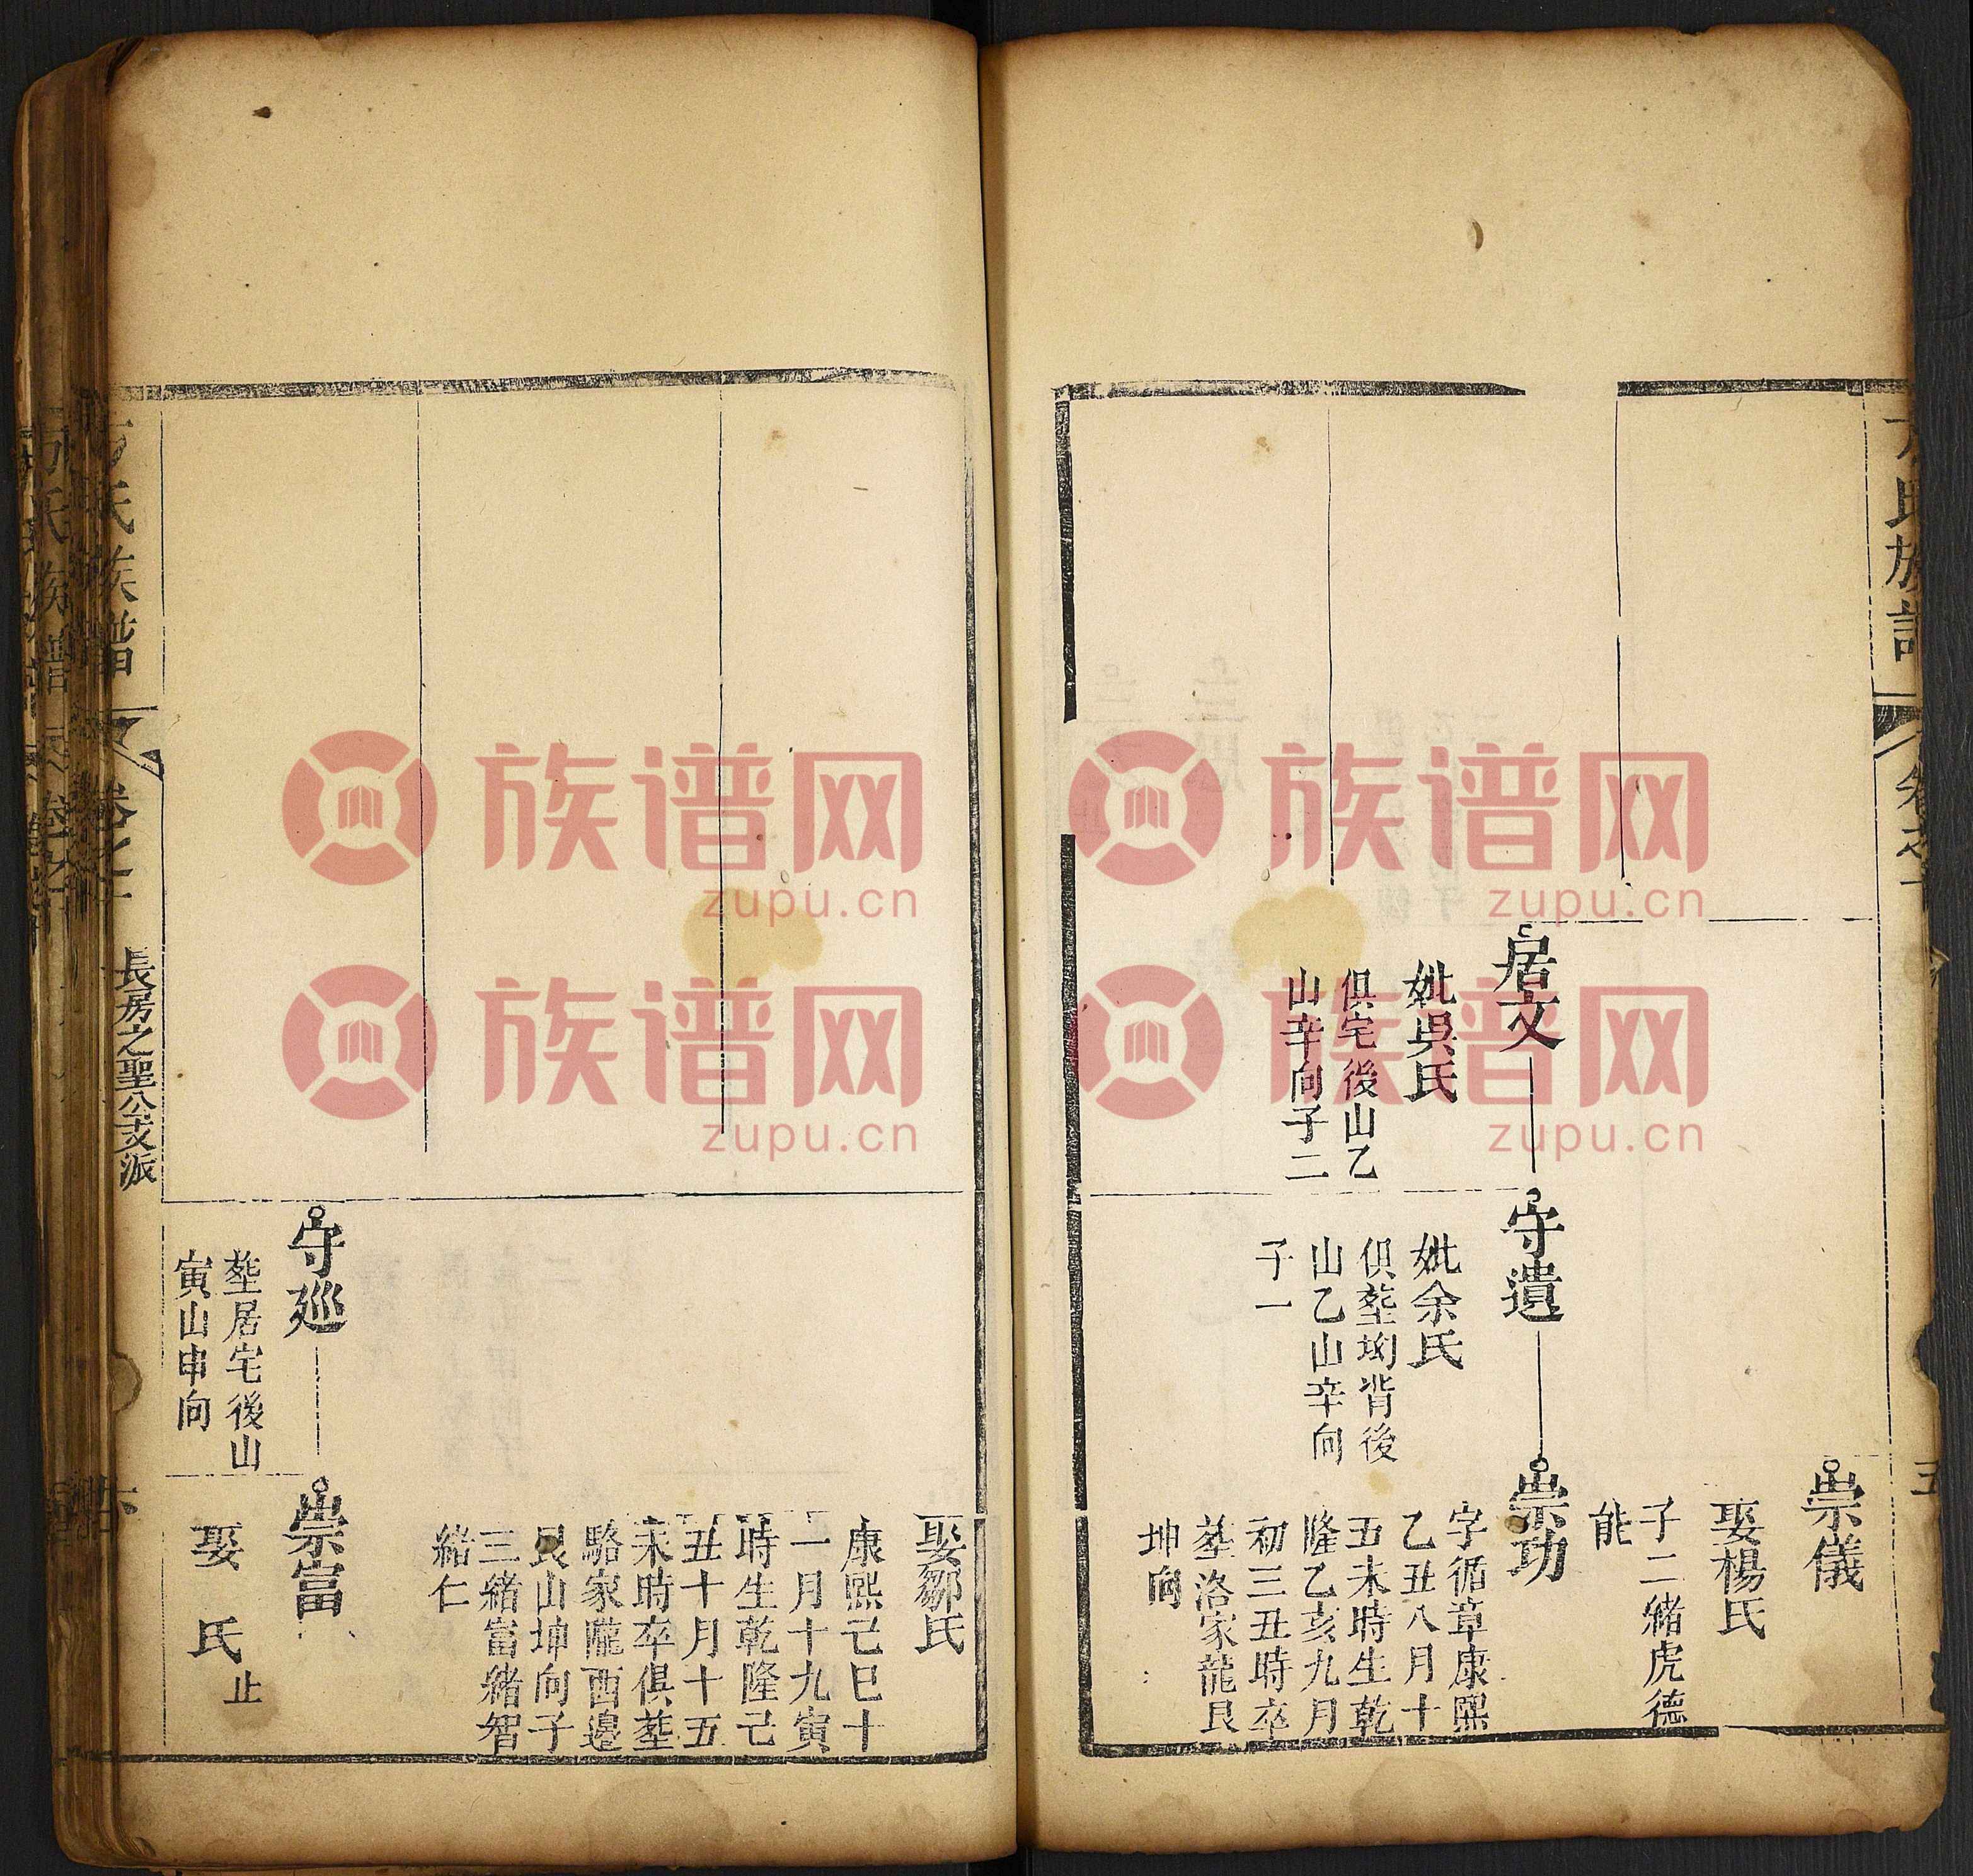 崇儀
娶楊氏
子二緒虎德
能
居文
妣吳氏
俱宅後山乙
山辛向子二
守遺
妣余氏
俱塟坳背後
山乙山辛向
子一
崇功
字循章康熙
乙丑八月十
五未時生乾
隆乙亥九月
初三丑時卒
塟洛家龍艮
坤向
娶鄒氏
康熙己巳十
一月十九寅
時生乾隆己
丑十月十五
未時卒俱塟
駱家隴酉邉
艮山坤向子
三緒富緒智
緒仁
守廵
塟居宅後山
寅山申向
崇富
娶 氏
止
氏族譜
卷之
長房之聖公支派
五
六
族谱网
zupu.cn
族谱网
zupu.cn
族谱网
zupu.cn
族谱网
zupu.cn